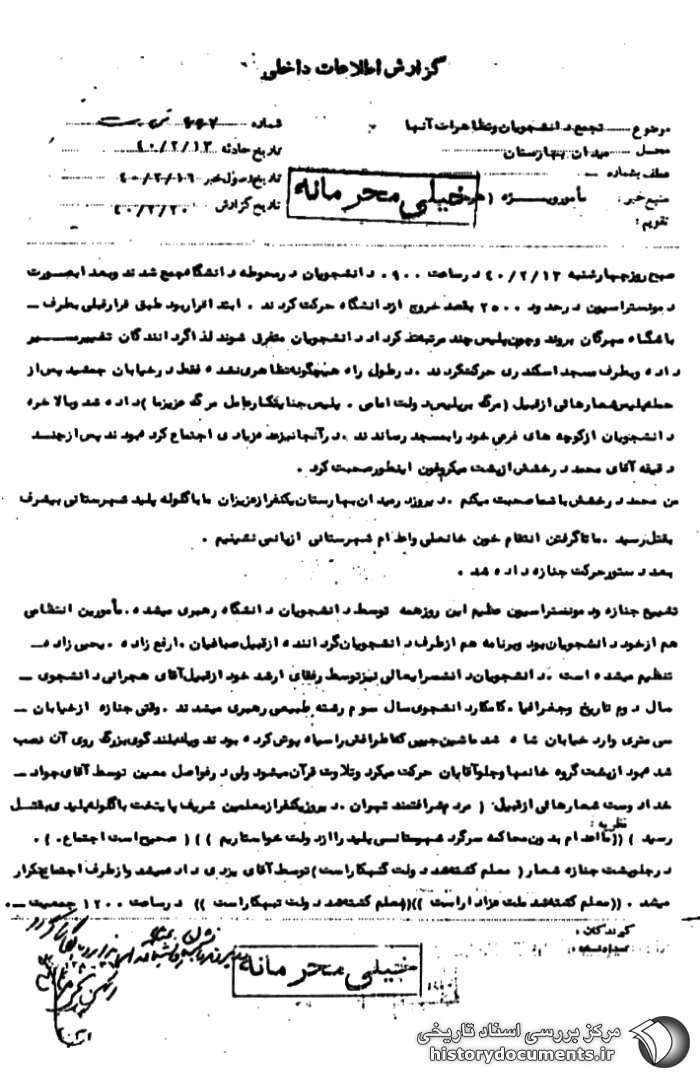 گزارش اطلاعات داخلی
موضوع تجمع دانشجویان و تظاهرات آنها
شماره
محل میدان بهارستان
تاریخ حادثه ۴۰/۲/۱۳
عطف بشماره
تاریخ وصول خبر ۴۰/۲/۱۶
منبع خبر: مأمور ویژه
تاریخ گزارش ۴۰/۲/۲۰
تقویم:
خیلی محرمانه
صبح روز چهارشنبه ۴۰/۲/۱۳ در ساعت ۹۰۰ دانشجویان در محوطه دانشگاه جمع شدند و بعد ابصورت
دمونستراسیون در حدود ۲۵۰۰ بقصد خروج از دانشگاه حرکت کردند . ابتدا قرار بود طبق قرار قبلی بطرف
باشگاه مهرگان بروند و چون پلیس چند مرتبه تذکر داد دانشجویان متفرق شوند لذا گردانندگان تغییر مسیر
داده و بطرف مسجد اسکندری حرکت کردند . در طول راه هیچگونه تظاهری نشده فقط در خیابان جمشید پس از
حمله پلیس شعارهائی از قبیل (مرگ بر پلیس دولت امامی . پلیس جنایتکار عامل مرگ عزیز ما) داده شد و بالاخره
دانشجویان از کوچه های فرعی خود را بمسجد رساندند . در آنجا نیز عده زیادی اجتماع کرده بودند پس از چند
دقیقه آقای محمد درخشش از پشت میکروفون اینطور صحبت کرد .
من محمد درخشش با شما صحبت میکنم . دیروز در میدان بهارستان یکنفر از عزیزان ما با گلوله پلید شهرستانی بیشرف
بقتل رسید . ما تا گرفتن انتقام خون خانعلی و اعدام شهرستانی از پا نمی نشینیم .
بعد دستور حرکت جنازه داده شد .
تشییع جنازه و دمونستراسیون عظیم این روز همه توسط دانشجویان دانشگاه رهبری میشده . مأمورین انتظامی
هم از خود دانشجویان بود و برنامه هم از طرف دانشجویان گرداننده از قبیل صباغیان . ارفع زاده . یحیی زاده
تنظیم میشده است . دانشجویان دانشسرایعالی نیز توسط رفقای ارشد خود از قبیل آقای هجرانی دانشجوی
سال دوم تاریخ و جغرافیا . کامکار دانشجوی سال سوم رشته طبیعی رهبری میشدند . وقتی جنازه از خیابان
سی متری وارد خیابان شاه شد ماشین جیپی که اطرافش را سیاه پوش کرده بودند و بلندگوی بزرگ روی آن نصب
شده بود از پشت گروه خانمها و جلو آقایان حرکت میکرد و تلاوت قرآن میشود ولی در فواصل معین توسط آقای جواد
خدادوست شعارهائی از قبیل ( مردم شرافتمند تهران . دیروز یکنفر از معلمین شریف پایتخت با گلوله پلیدی بقتل
نظریه :
رسید ) ((ما اعدام بدون محاکمه سرگرد شهرستانی پلید را از دولت خواستاریم )) ( صحیح است اجتماع . ) .
در جلو پشت جنازه شعار ( معلم کشته شد دولت گنهکار است) توسط آقای یزدی داده میشد و از طرف اجتماع تکرار
میشد . ((معلم کشته شد ملت عزادار است )) ((معلم کشته شد دولت تبهکار است )) در ساعت ۱۲۰۰ جمعیت
گیرندگان :
خیلی محرمانه
مرکز بررسی اسناد تاریخی
historydocuments.ir